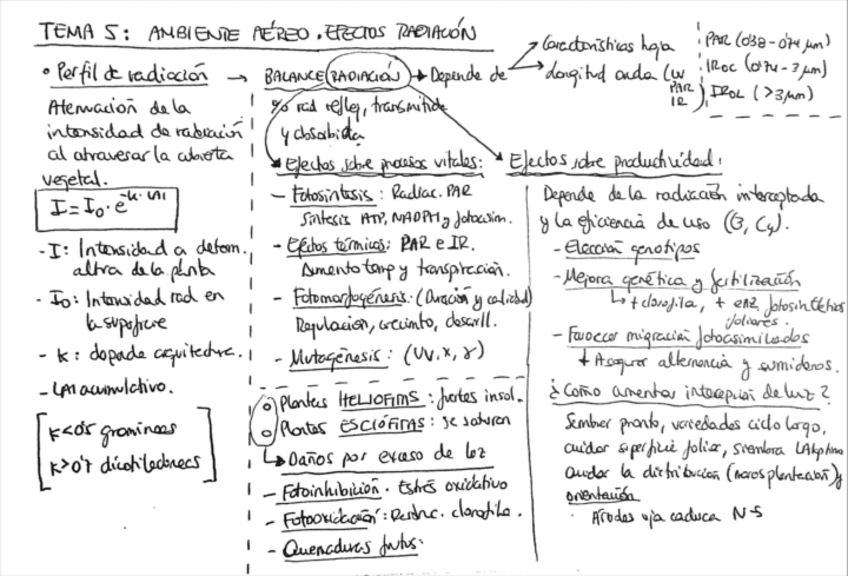 TEMA 5: AMBIENTE AÉREO. EFECTOS RADIACIÓN
• Perfil de radiación →
Atenuación de la
intensidad de radiación
al atravesar la cubierta
vegetal.
I = I₀ · e^-k·LAI
- I: Intensidad a determ.
altura de la planta
- I₀: Intensidad rad en
la superficie
- k: depende arquitectura.
- LAI acumulativo.
k<0'5 gramineas
k>0'7 dicotiledoneas
BALANCE RADIACIÓN → Depende de
Características hoja
Longitud onda (UV
PAR
IR)
PAR (0'38-0'74 μm)
IROC (0'74-3 μm)
IROL (>3 μm)
% rad reflej, transmitida
y absorbida
Efectos sobre procesos vitales:
- Fotosíntesis: Radiac. PAR
Síntesis ATP, NADPH y fotoasim.
- Efectos térmicos: PAR e IR.
Aumento temp y transpiración.
- Fotomorfogénesis: (Duración y calidad)
Regulación, crecimto, desarll.
- Mutagénesis: (UV, X, γ)
Plantas HELIOFITAS: fuertes insol.
Plantas ESCIÓFITAS: se saturan
Daños por exceso de luz
- Fotoinhibición. Estrés oxidativo
- Fotooxidación: clorofila.
- Quemaduras frutos.
Efectos sobre productividad:
Depende de la radiación interceptada
y la eficiencia de uso (C3, C4).
- Elección genotipos
- Mejora genética y fertilización
+ clorofila, + enz fotosintéticas
foliares.
- Favorecer migración fotoasimilados
Asegurar alternancia y sumideros.
¿Cómo aumentar intercepción de luz?
Sembrar pronto, variedades ciclo largo,
cuidar superficie foliar, siembra LAIóptimo
cuidar la distribución (marcos plantación) y
orientación
· Árboles hoja caduca N-S